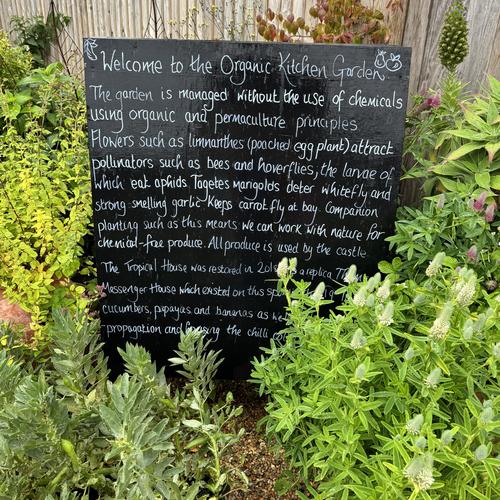 Welcome to the Organic Kitchen Garden
The garden is managed without the use of chemicals
using organic and permaculture principles
Flowers such as limnanthes (poached egg plant) attract
pollinators such as bees and hoverflies, the larvae of
which eat aphids. Tagetes marigolds deter whitefly and
strong smelling garlic keeps carrot fly at bay. Companion
planting such as this means we can work with nature for
chemical-free produce. All produce is used by the castle
The Tropical House was restored in a replica
Messenger House which existed on this
cucumbers, papayas and bananas as
propagation and housing the chilli